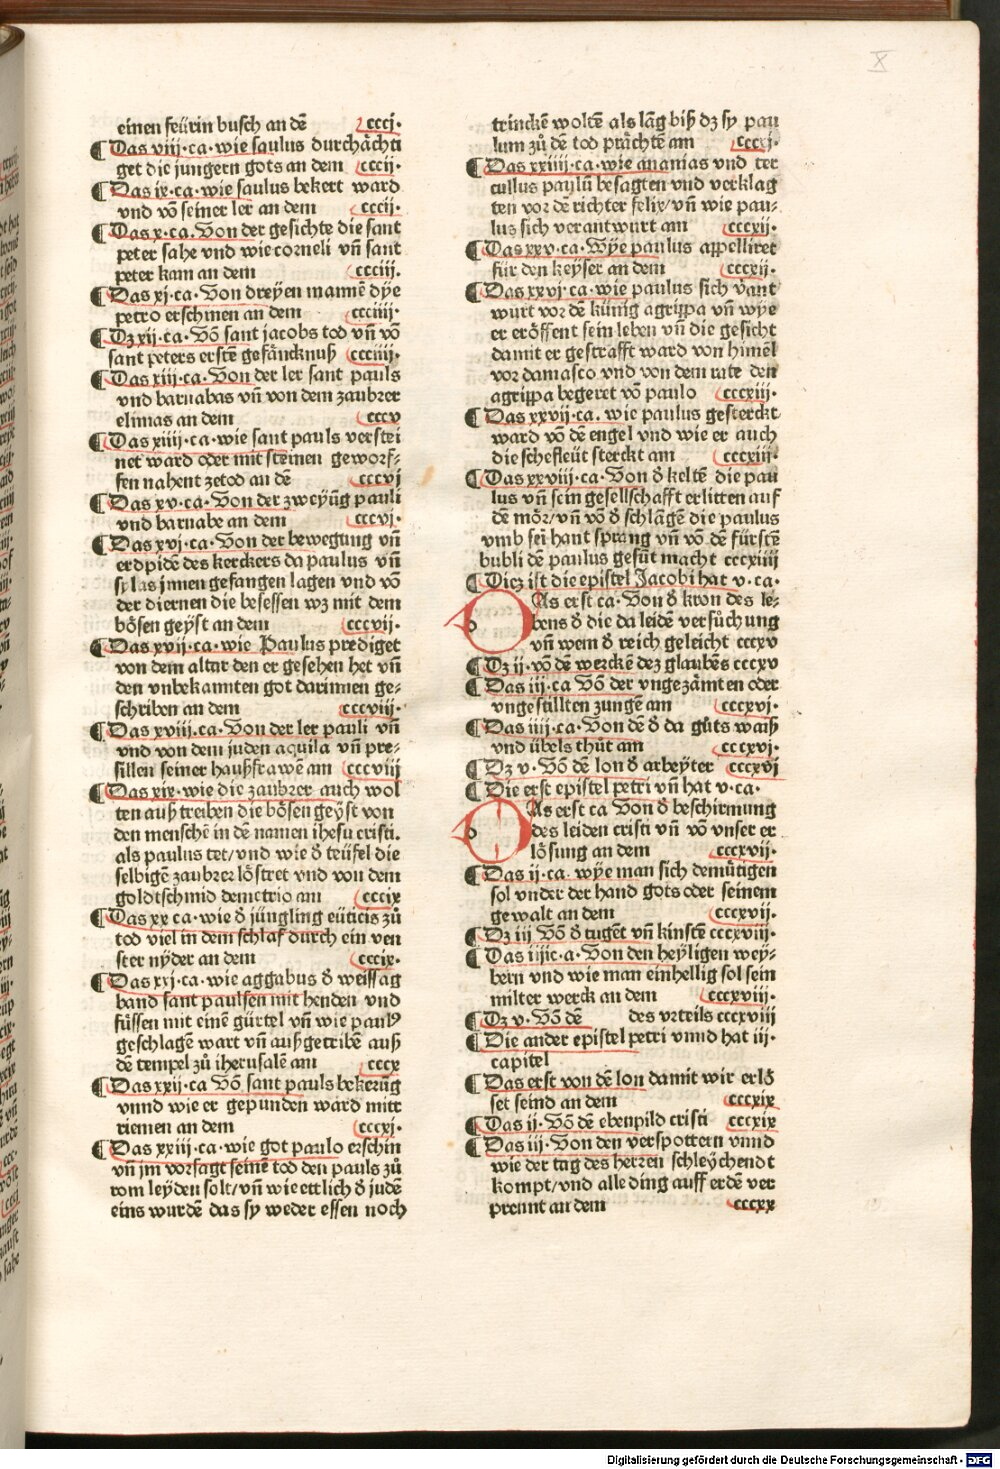 X
einen feürin busch an dē cccj·
¶ Das viij·ca·wie saulus durchächti
get die jungern gots an dem cccij·
¶ Das ix·ca·wie saulus bekert ward
vnd vō seiner ler an dem cccij·
¶ Das x·ca·Von der gesichte die sant
peter sahe vnd wie corneli vn̄ sant
peter kam an dem ccciij.
¶ Das xj·ca·Von dreyen mannē dye
petro erschinen an dem ccciiij·
¶ Dz xij·ca·Vō sant jacobs tod vn̄ vō
sant peters erstē gefäncknuß ccciiij·
¶ Das xiij·ca·Von der ler sant pauls
vnd barnabas vn̄ von dem zaubrer
elimas an dem cccv
¶ Das xiiij·ca·wie sant pauls verstei
net ward oder mit steinen geworf⸗
fen nahent zetod an dē cccvj
¶ Das xv·ca·Von der zweyūg pauli
vnd barnabe an dem cccvj·
¶ Das xvj·ca·Von der bewegung vn̄
erdpidē des kerckers da paulus vn̄
sylas jnnen gefangen lagen vnd vō
der diernen die besessen wz mit dem
bösen geyst an dem cccvij·
¶ Das xvij·ca·wie Paulus prediget
von dem altar den er gesehen het vn̄
den vnbekannten got darinnen ge⸗
schriben an dem cccviij·
¶ Das xviij·ca·Von der ler pauli vn̄
vnd von dem juden aquila vn̄ pre⸗
sillen seiner haußfrawē am cccviij
¶ Das xix·wie die zaubrer auch wol
ten auß treiben die bösen geyst von
den menschē in dē namen ihesu cristi.
als paulus tet/vnd wie d̄ teüfel die
selbigē zaubrer löstret vnd von dem
goldtschmid demetrio am cccix
¶ Das xx ca·wie d̄ jüngling eüticis zů
tod viel in dem schlaf durch ein ven
ster nyder an dem cccix·
¶ Das xxj·ca·wie aggabus d̄ weissag
band sant paulsen mit henden vnd
füssen mit einē gürtel vn̄ wie paulꝰ
geschlagē wart vn̄ außgetribē auß
dē tempel zů iherusalē am cccx
¶ Das xxij·ca Vō sant pauls bekerūg
vnnd wie er gepunden ward mitt
riemen an dem cccxj·
¶ Das xxiij·ca·wie got paulo erschin
vn̄ jm vorsagt seinē tod den pauls zů
rom leyden solt/vn̄ wie ettlich d̄ judē
eins wurdē das sy weder essen noch
trinckē woltē als lāg biß dz sy pau
lum zů dē tod prächtē am cccxj·
¶ Das xxiiij·ca·wie ananias vnd ter
cullus paulū besagten vnd verklag
ten vor dē richter felix/vn̄ wie pau⸗
lus sich verantwurt am cccxij·
¶ Das xxv·ca·Wye paulus appelliret
für den keyser an dem cccxij·
¶ Das xxvj·ca·wie paulus sich v̄ant
wurt vor dē künig agrippa vn̄ wye
er eröffent sein leben vn̄ die gesicht
damit er gestrafft ward von himēl
vor damasco vnd von dem rate den
agrippa begeret vō paulo cccxiij·
¶ Das xxvij·ca. wie paulus gesterckt
ward vō dē engel vnd wie er auch
die schefleüt sterckt am cccxiij·
¶ Das xxviij·ca·Von d̄ keltē die pau
lus vn̄ sein gesellschafft erlitten auf
dē mör/vn̄ vō d̄ schlāgē die paulus
vmb sei hant sprang vn̄ vō dē fürstē
bubli dē paulus gesūt macht cccxiiij
¶ Dicz ist die epistel Jacobi hat v·ca·
DAs erst ca·Von d̄ kron des le⸗
bens d̄ die da leidē versůchung
vn̄ wem d̄ reich geleicht cccxv
¶ Dz ij·vō dē werckē dez glaubēs cccxv
¶ Das iij·ca Vō der vngezämten oder
vngestillten zungē am cccxvj·
¶ Das iiij·ca·Von dē d̄ da gůts waiß
vnd übels thůt am cccxvj·
¶ Dz v·Vō dē lon d̄ arbeyter cccxvj
¶ Die erst epistel petri vn̄ hat v·ca·
DAs erst ca Von d̄ beschirmung
des leiden cristi vn̄ vō vnser er
lösung an dem cccxvij·
¶ Das ij·ca·wye man sich demütigen
sol vnder der hand gots oder seinem
gewalt an dem cccxvij·
¶ Dz iij Vō d̄ tugēt vn̄ kinstē cccxviij·
¶ Das iiijc·a·Von den heyligen wey⸗
bern vnd wie man einhellig sol sein
milter werck an dem cccxviij·
¶ Dz v·Vō dē des vrteils cccxviij
¶ Die ander epistel petri vnnd hat iij·
capitel
¶ Das erst von dē lon damit wir erlö
set seind an dem cccxix
¶ Das ij·Vō dē ebenpild cristi cccxix
¶ Das iij·Von den verspottern vnnd
wie der tag des herren schleychendt
kompt/vnd alle ding auff erdē ver
prennt an dem cccxx
Digitalisierung gefördert durch die Deutsche Forschungsgemeinschaft - DFG